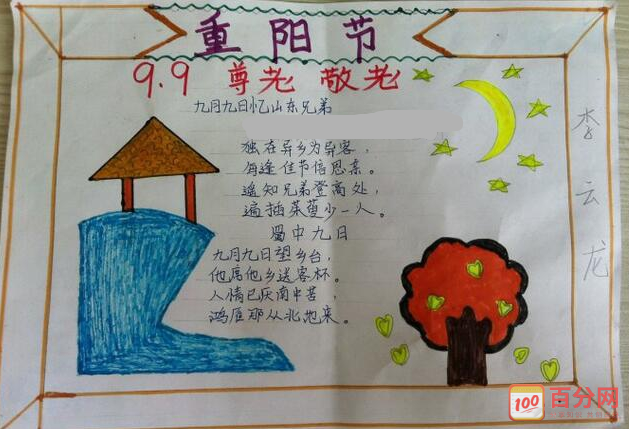 重阳节
9.9 尊老 敬老
九月九日忆山东兄弟
独在异乡为异客，
每逢佳节倍思亲。
遥知兄弟登高处，
遍插茱萸少一人。
蜀中九日
九月九日望乡台，
他席他乡送客杯。
人情已厌南中苦，
鸿雁那从北地来。
李云龙
100 百分网